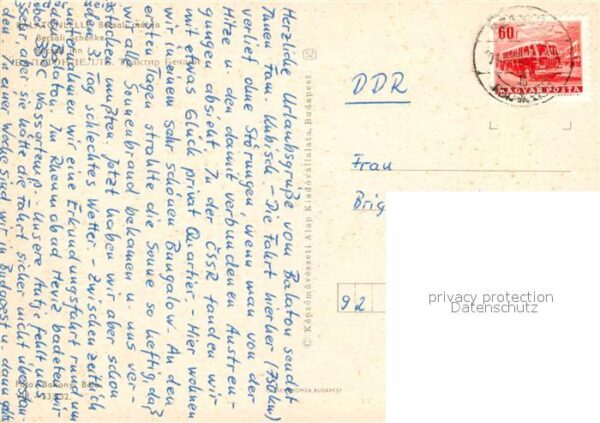 BALATONLELLE Becsali csárda
Becsali Schenke
Foto: Bakonyi Béla
Herzliche Urlaubsgrüße vom Balaton sendet
Ihnen Fam. Kubisch. - Die Fahrt hierher (750 km)
verlief ohne Störungen, wenn man von der
Hitze u. den damit verbundenen Anstren-
gungen absieht. In der ČSSR fanden wir
mit etwas Glück privat Quartier. - Hier wohnen
wir in einem sehr schönen Bungalow. An den
ersten Tagen strahlte die Sonne so heftig, daß
wir alle Sonnenbrand bekamen u. uns ver-
stecken mußten. Jetzt haben wir aber schon
den 3. Tag schlechtes Wetter. - Zwischenzeitlich
unternahmen wir eine Erkundungsfahrt rund um
den Balaton. Im Thermalbad Heviz badeten wir
bei 30°C Wassertemp. - Unsere Antje fehlt uns
sehr, aber sie hätte die Fahrt sicher nicht überstan-
den. In einer Woche sind wir in Budapest u. dann geht
© Képzőművészeti Alap Kiadóvállalata, Budapest
NYOMDA, BUDAPEST
60f
MAGYAR POSTA
DDR
Frau
Brig
92
privacy protection
Datenschutz